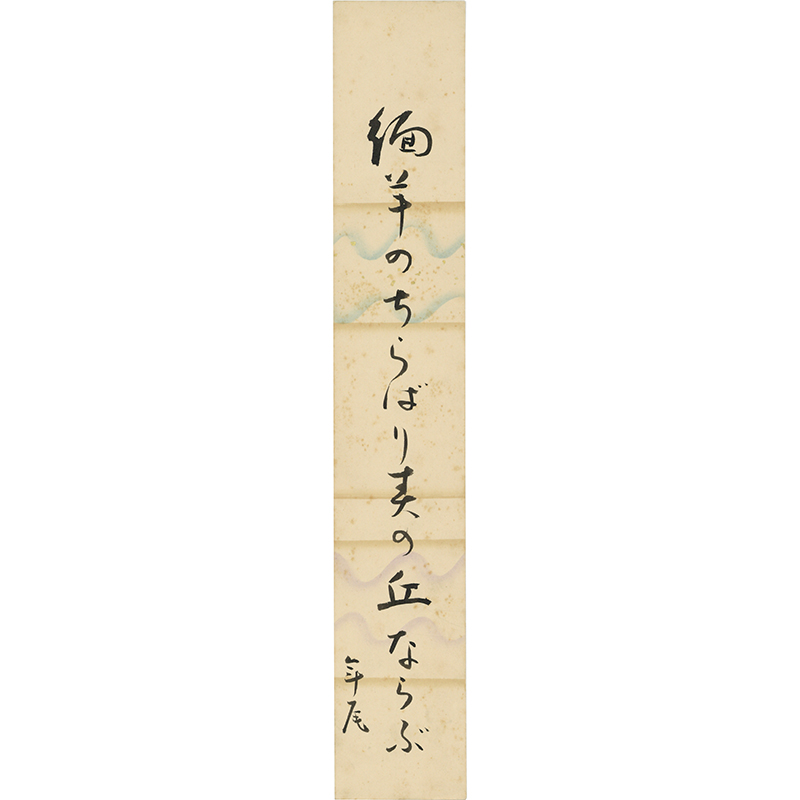 緬羊のちらばり麦の丘ならぶ
年尾